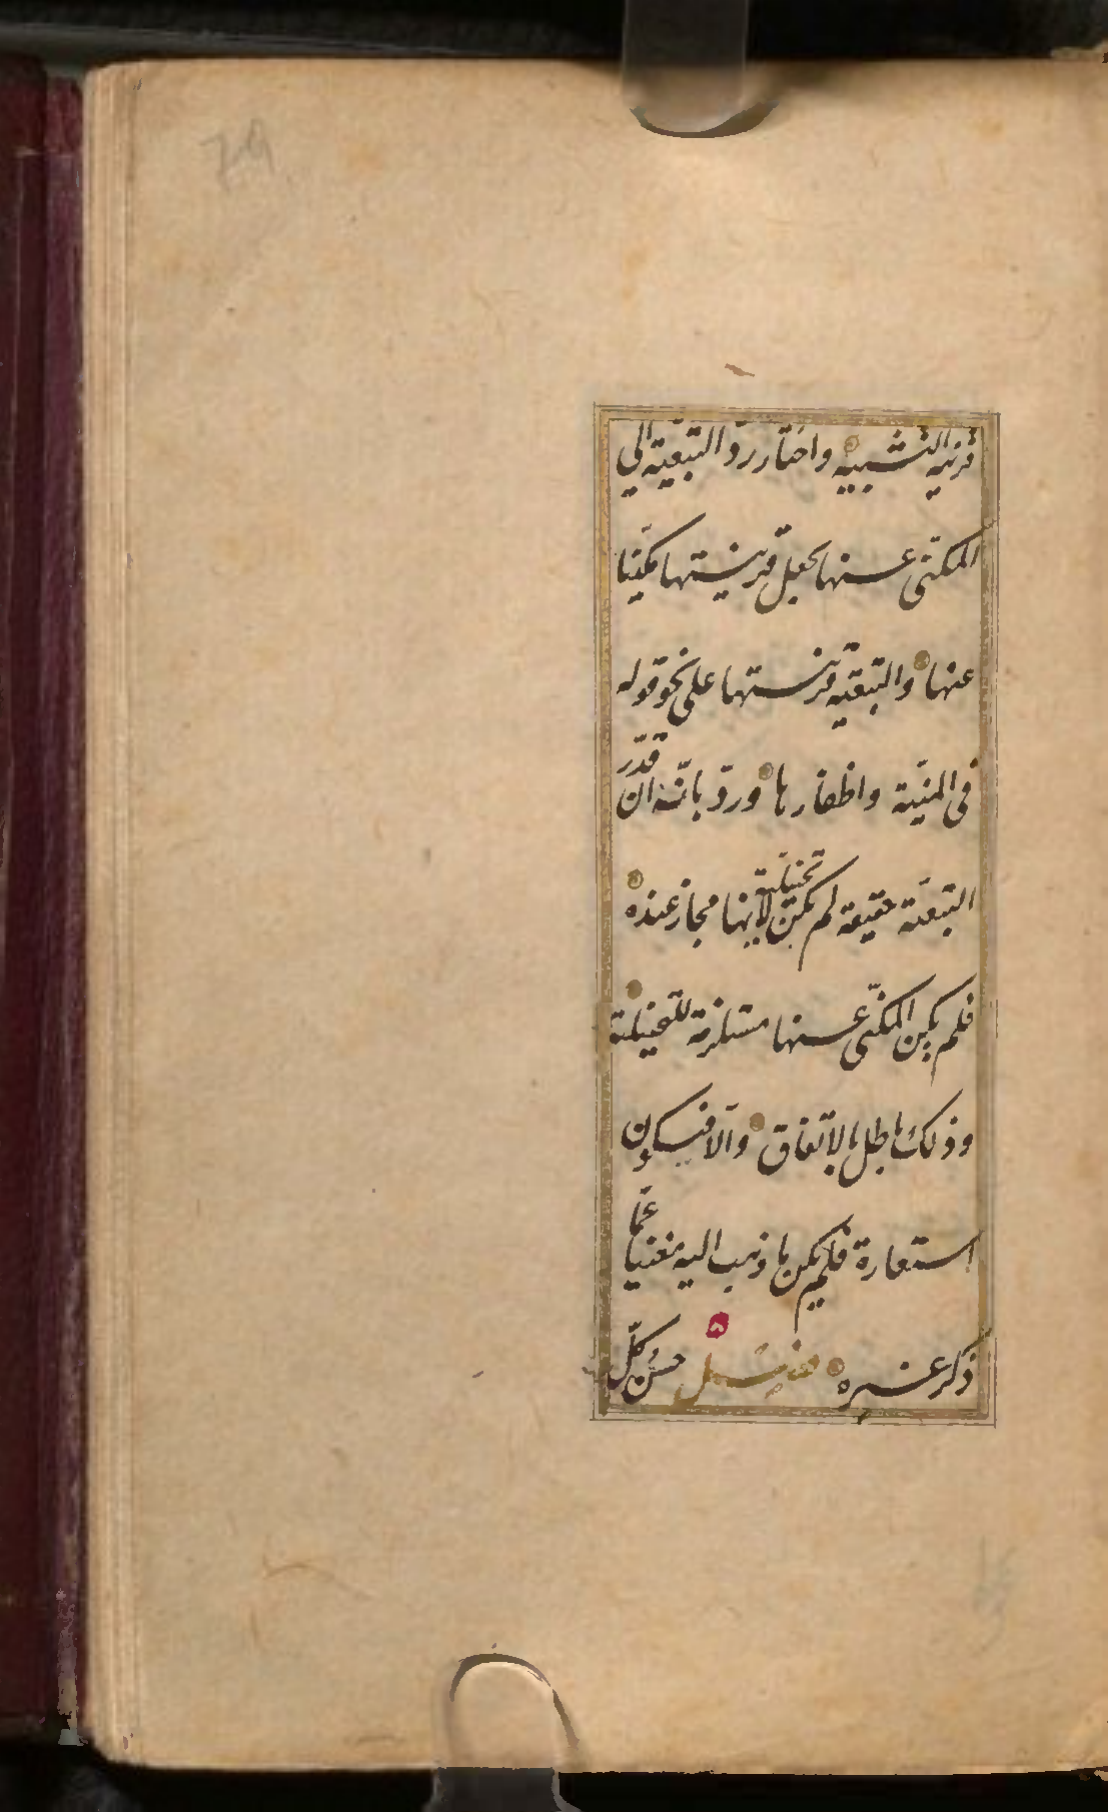 79
قرينة التشبيه واختار ردّ التبعيّة الى
المكنى عنها بجعل قرينتها مكنيا
عنها والتبعيه قرينتها على نحو قوله
فى المنيّة واظفارها وردّ بانّه ان قدّر
التبعيّة حقيقة لم يكن تخييلية لأنها مجاز عنده
فلم يكن المكنّى عنها مستلزمة للتخييلية
وذلك باطل بالاتّفاق والّا فيكون
استعارة فلم يكن ما ذهب اليه مغنيا عمّا
ذكر غيره فصل حسن كلّ